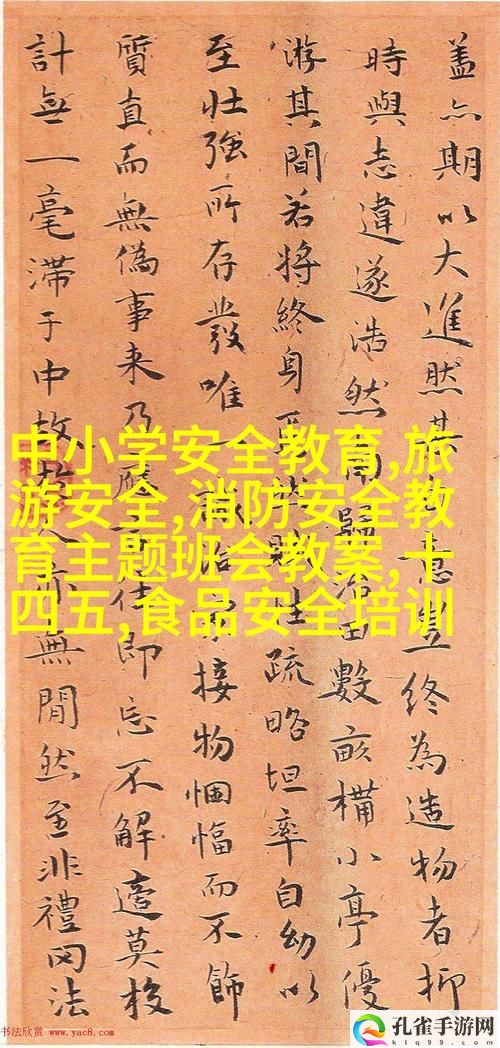 盖亦期以大進然其意豈終為造物者抑
時與志違遂浩然歸田數畝構小亭優
游其間若將終身焉性疏略坦率自幼以
至壯強所存發唯一接物悃愊而不飾
質直而無偽事来乃應即忘不解莫校
計無一毫滯于中故人亦無閒然至非禮罔法
中小学安全教育,旅
游安全,消防安全教
育主题班会教案,十
四五,食品安全培训
书法欣赏 www.yac8.com
孔雀手游网
k1q99.com